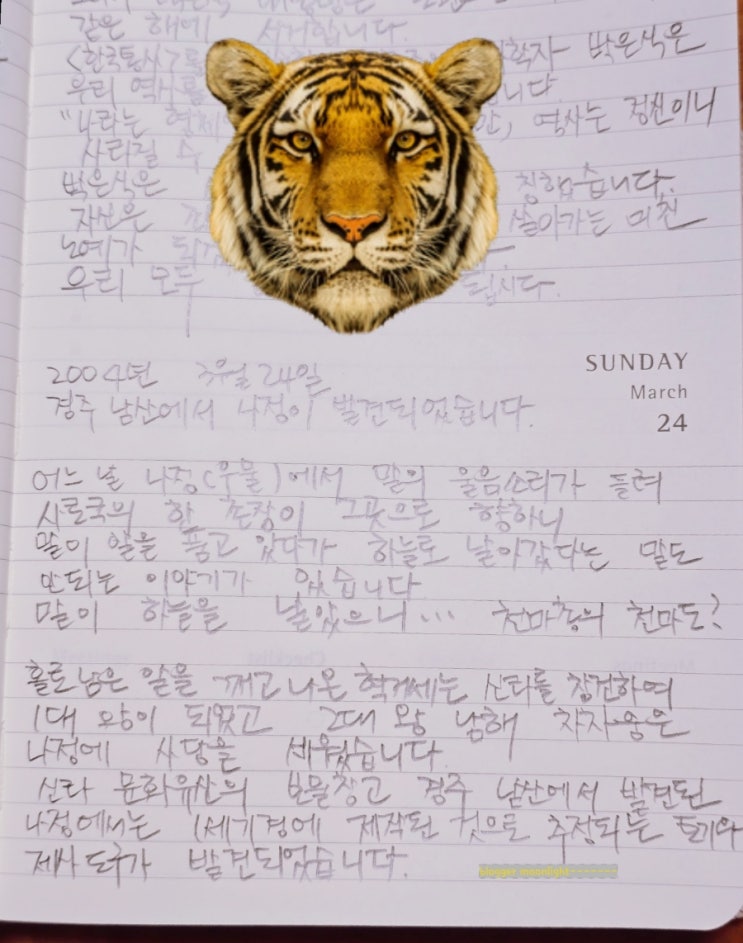 같은 해에 서거합니다.
<한국통사>를 학자 박은식은
우리 역사를 니다
"나라는 형체 , 역사는 정신이니
사라질 수
박은식은 칭했습니다.
자신은 살아가는 미친
노예가
우리 모두 드립시다.
SUNDAY
March
24
2004년 3월 24일
경주 남산에서 나정이 발견되었습니다.
어느 날 나정(우물)에서 말의 울음소리가 들려
사로국의 한 촌장이 그곳으로 향하니
말이 알을 품고 있다가 하늘로 날아갔다는 말도
안되는 이야기가 있습니다
말이 하늘을 날았으니... 천마총의 천마도?
홀로 남은 알을 깨고 나온 혁거세는 신라를 창건하여
1대 왕이 되었고 2대 왕 남해 차차웅은
나정에 사당을 세웠습니다.
신라 문화유산의 보물창고 경주 남산에서 발견된
나정에서는 1세기경에 제작된 것으로 추정되는 토기와
제사 도구가 발견되었습니다.
blogger moonlight~~~~~~~